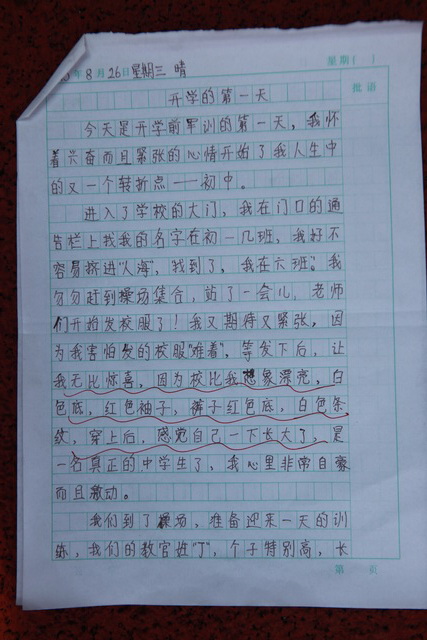 年8月26日星期三 晴
星期( )
开学的第一天
批语
今天是开学前军训的第一天，我怀
着兴奋而且紧张的心情开始了我人生中
的又一个转折点——初中。
进入了学校的大门，我在门口的通
告栏上找我的名字在初一几班，我好不
容易挤进"人海"，找到了，我在六班。我
匆匆赶到操场集合，站了一会儿，老师
们开始发校服了！我又期待又紧张，因
为我害怕发的校服"难着"，等发下后，让
我无比惊喜，因为校比我想象漂亮，白
色底，红色袖子，裤子红色底，白色条
纹，穿上后，感觉自己一下长大了，是
一名真正的中学生了，我心里非常自豪
而且激动。
我们到了操场，准备迎来一天的训
练，我们的教官姓"丁"，个子特别高，长
第 页